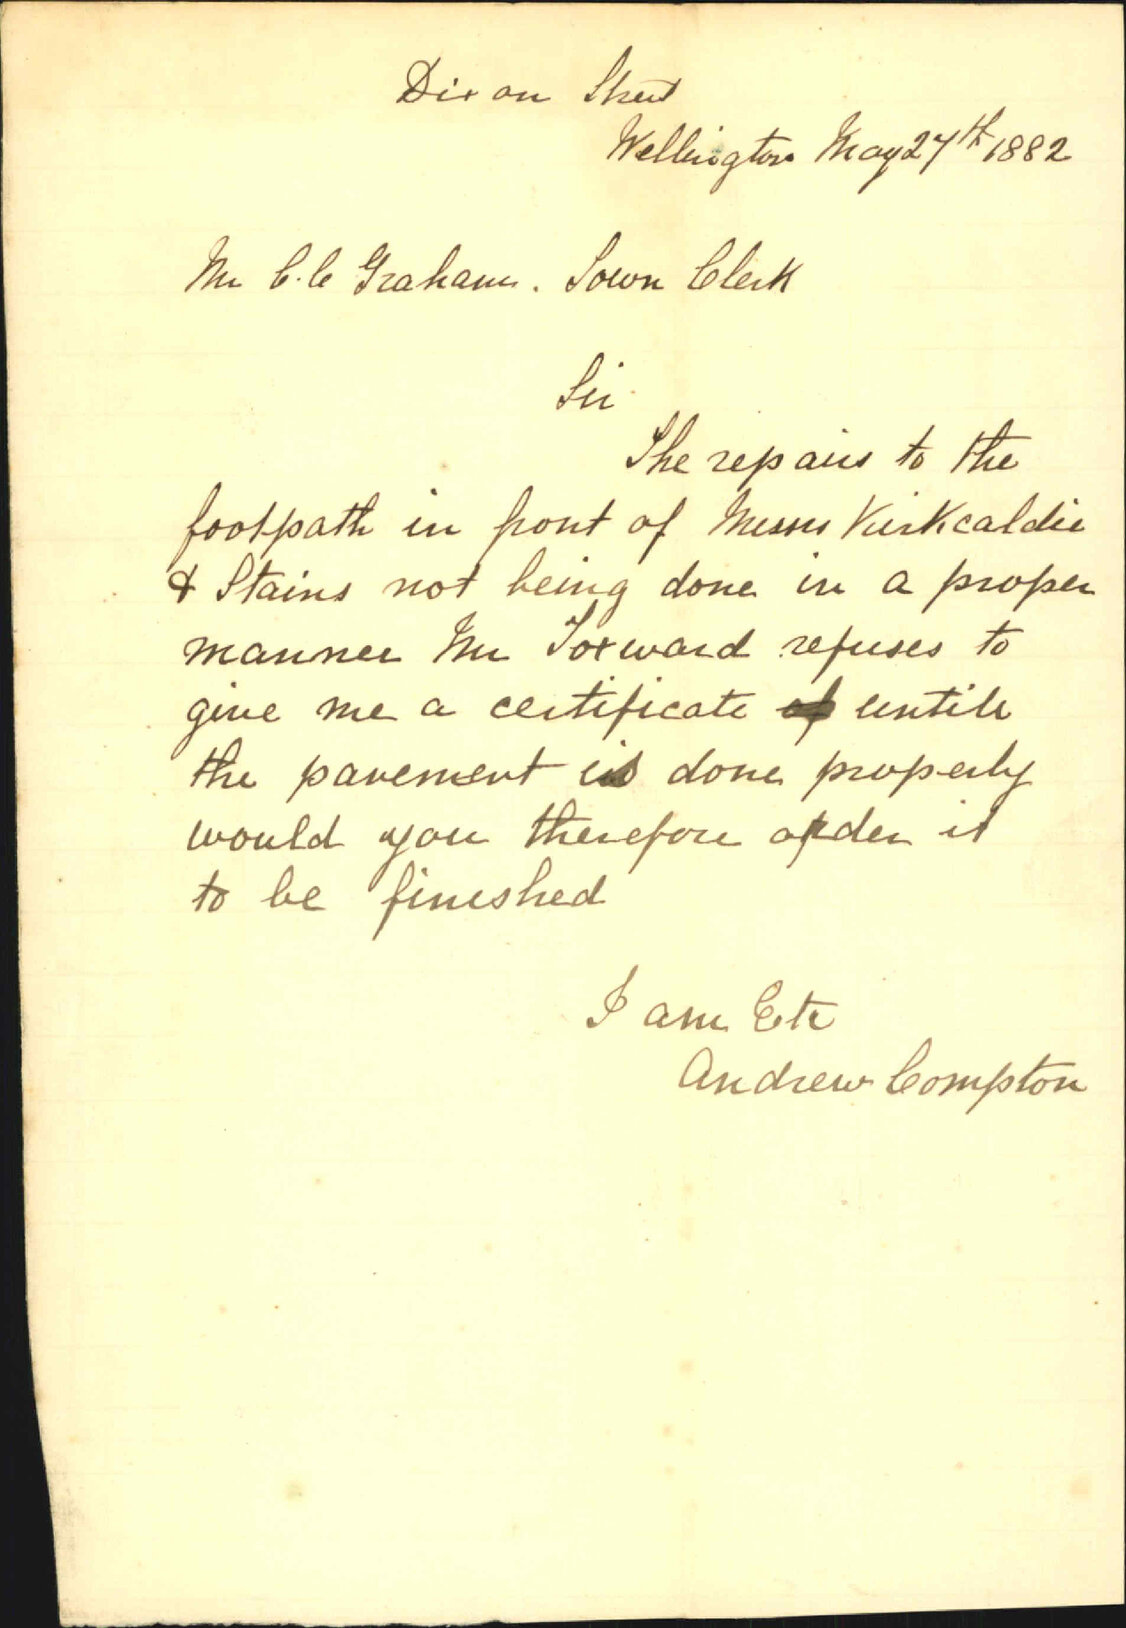 Dixon Street
Wellington May 27th 1882
Mr C. C Graham. Town Clerk
Sir
The repairs to the
footpath in front of Messrs Kirkcaldie
& Stains not being done in a proper
manner Mr Toxward refuses to
give me a certificate untill
the pavement is done properly
would you therefore order it
to be finished
I am Etc
Andrew Compton